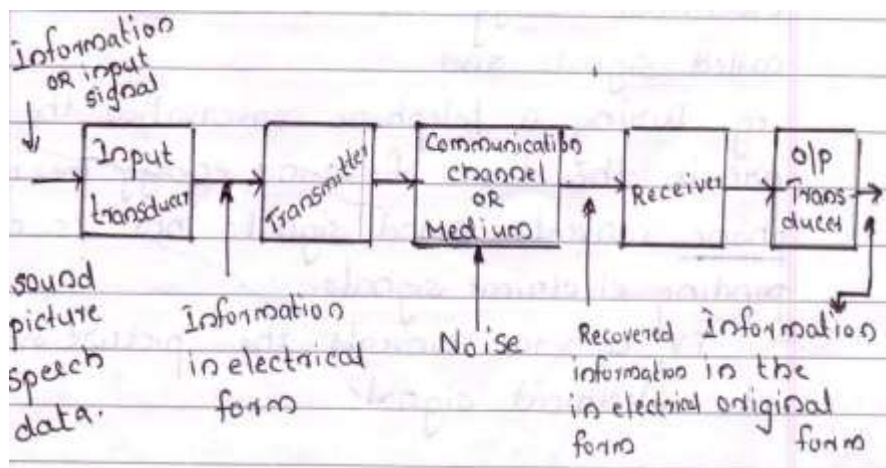 Information
OR input
signal
Input
transducer
Transmitter
Communication
channel
OR
Medium
Receiver
O/P
Trans-
ducer
sound
picture
speech
data.
Information
in electrical
form
Noise
Recovered
information
in electrical
form
Information
in the
original
form